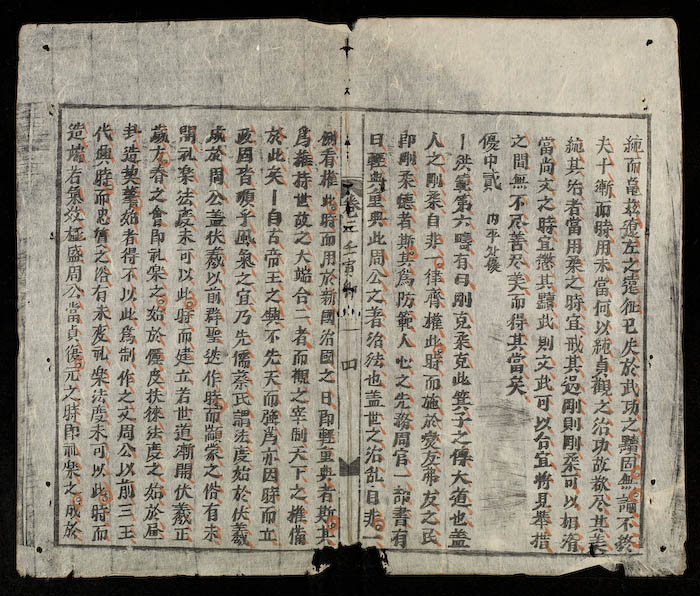 統而竟兹遼左之寇征已失於武功之黷固無論不終
夫十漸而時用未當何以純貞觀之治功故欲尽其美
統其治者當用柔之時宜戒其過剛則剛柔可以相濟
當尚文之時宜懲其黷武則文武可以合宜將見舉措
之間無不尽善尽美而得其當矣
優中貳 內平处優
一洪範第六疇有曰剛克柔克此箕子之傳大道也盖
人之剛柔自非一律齊權此時而施於燮友弗友之民
即剛柔德者斯其為防範人心之先務周官一部書有
曰輕典重典此周公之著治法也盖世之治乱自非一
側看權此時而用於新國治國之日即輕重典者斯其
為維持世故之大端合二者而觀之宰制天下之權備
於此矣一自古帝王之興不先天而強為亦因時而立
政因皆順乎風氣之宜乃先儒蔡氏謂法度始於伏羲
成於周公盖伏羲以前群聖迭作時而顓蒙之俗有未
開礼楽法度未可以此時而建立若世道漸開伏羲正
歲方春之會即礼楽之始於儷皮扶徠法度之始於
卦造契蓍始者得不以此為制作之文周公以前三王
代興時而忠質之俗有未变礼楽法度未可以此時而
造端若氣数極盛周公當貞復元之時即礼楽之成於
卷二 壬寅科 四